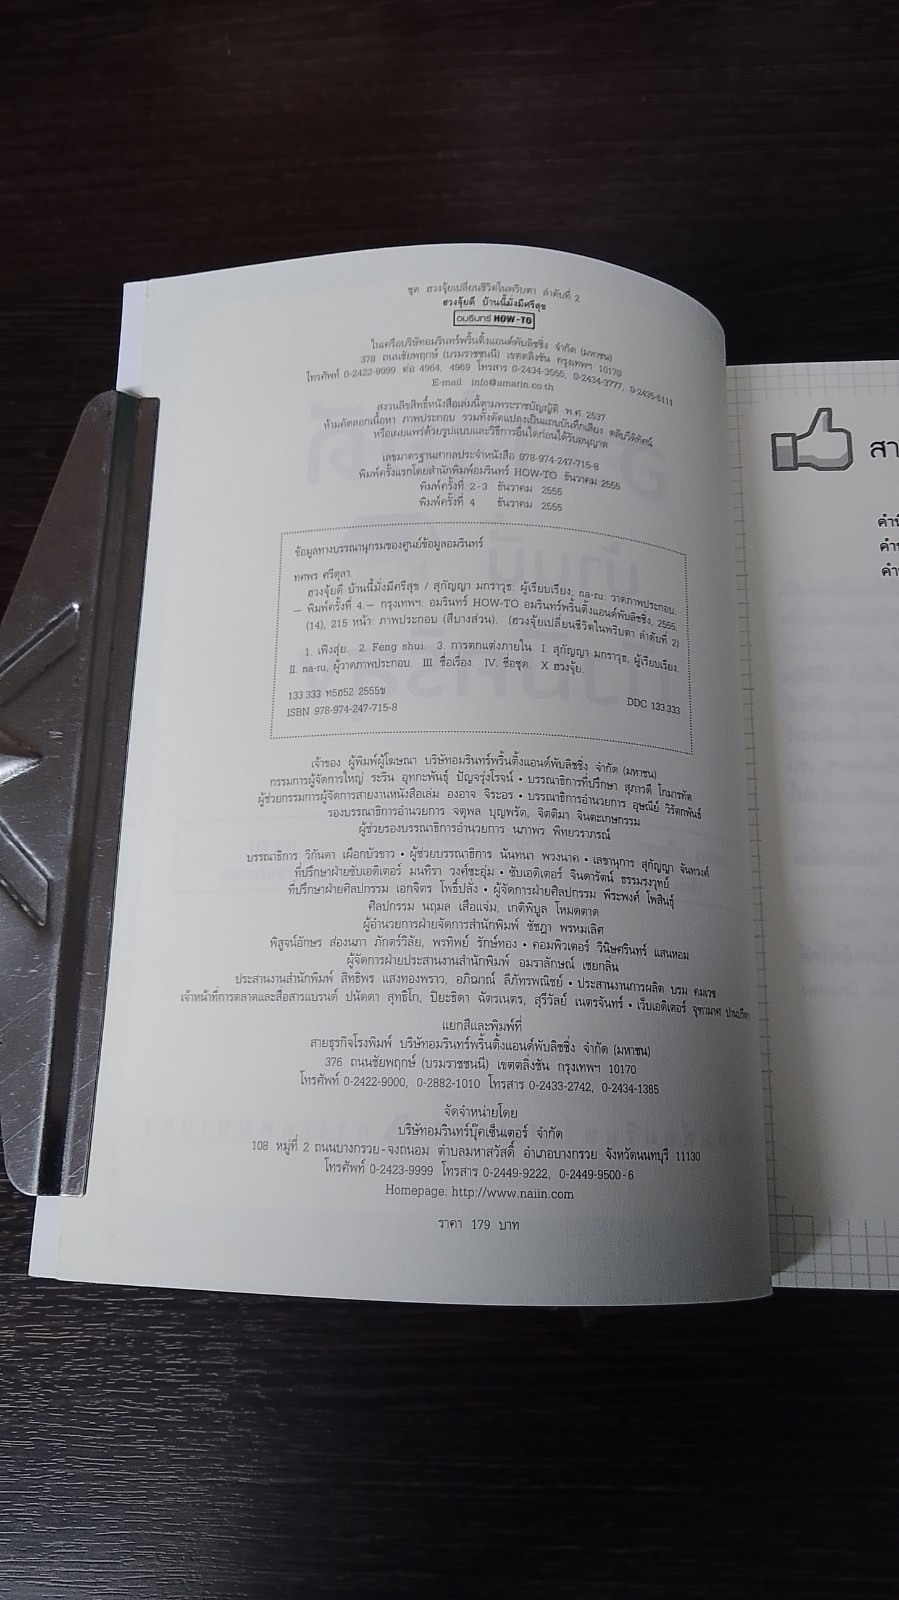 ชุด ฮวงจุ้ยเปลี่ยนชีวิตในพริบตา ลำดับที่ 2
ฮวงจุ้ยดี บ้านนี้มั่งมีศรีสุข
อมรินทร์ HOW-TO
ในเครือบริษัทอมรินทร์พริ้นติ้งแอนด์พับลิชชิ่ง จำกัด (มหาชน)
378 ถนนชัยพฤกษ์ (บรมราชชนนี) เขตตลิ่งชัน กรุงเทพฯ 10170
โทรศัพท์ 0-2422-9999 ต่อ 4964, 4969 โทรสาร 0-2434-3555, 0-2434-3777, 0-2435-5111
E-mail: info@amarin.co.th
สงวนลิขสิทธิ์หนังสือเล่มนี้ตามพระราชบัญญัติ พ.ศ. 2537
ห้ามคัดลอกเนื้อหา ภาพประกอบ รวมทั้งดัดแปลงเป็นแถบบันทึกเสียง ตลับวีดิทัศน์
หรือเผยแพร่ด้วยรูปแบบและวิธีการอื่นใดก่อนได้รับอนุญาต
เลขมาตรฐานสากลประจำหนังสือ 978-974-247-715-8
พิมพ์ครั้งแรกโดยสำนักพิมพ์อมรินทร์ HOW-TO ธันวาคม 2555
พิมพ์ครั้งที่ 2-3 ธันวาคม 2555
พิมพ์ครั้งที่ 4 ธันวาคม 2555
ข้อมูลทางบรรณานุกรมของศูนย์ข้อมูลอมรินทร์
ทศพร ศรีตุลา
ฮวงจุ้ยดี บ้านนี้มั่งมีศรีสุข / สุกัญญา มกราวุธ: ผู้เรียบเรียง; na-ru: วาดภาพประกอบ.
— พิมพ์ครั้งที่ 4 — กรุงเทพฯ: อมรินทร์ HOW-TO อมรินทร์พริ้นติ้งแอนด์พับลิชชิ่ง, 2555.
(14), 215 หน้า: ภาพประกอบ (สีบางส่วน). (ฮวงจุ้ยเปลี่ยนชีวิตในพริบตา ลำดับที่ 2)
1. เฟิงสุ่ย. 2. Feng shui. 3. การตกแต่งภายใน I. สุกัญญา มกราวุธ, ผู้เรียบเรียง.
II. na-ru, ผู้วาดภาพประกอบ. III. ชื่อเรื่อง. IV. ชื่อชุด. X ฮวงจุ้ย.
133.333 ท5ฮ52 2555ข
ISBN 978-974-247-715-8 DDC 133.333
เจ้าของ ผู้พิมพ์ผู้โฆษณา บริษัทอมรินทร์พริ้นติ้งแอนด์พับลิชชิ่ง จำกัด (มหาชน)
กรรมการผู้จัดการใหญ่ ระริน อุทกะพันธุ์ ปัญจรุ่งโรจน์ • บรรณาธิการที่ปรึกษา สุภารดี โกมารทัต
ผู้ช่วยกรรมการผู้จัดการสายงานหนังสือเล่ม องอาจ จิระอร • บรรณาธิการอำนวยการ อุษณีย์ วิรัตกพันธ์
รองบรรณาธิการอำนวยการ จตุพล บุญพรัด, จิตติมา จินตะเกษกรรม
ผู้ช่วยรองบรรณาธิการอำนวยการ นภาพร พิทยวราภรณ์
บรรณาธิการ วิกันดา เผือกบัวขาว • ผู้ช่วยบรรณาธิการ นันทนา พวงนาค • เลขานุการ สุกัญญา จันทวงค์
ที่ปรึกษาฝ่ายซับเอดิเตอร์ มนทิรา วงศ์ชะอุ่ม • ซับเอดิเตอร์ จินดารัตน์ ธรรมรงวุทย์
ที่ปรึกษาฝ่ายศิลปกรรม เอกจิตร โพธิ์ปลั่ง • ผู้จัดการฝ่ายศิลปกรรม พีระพงศ์ โพสินธุ์
ศิลปกรรม นฤมล เสือแจ่ม, เกติพิบูล โหมดตาด
ผู้อำนวยการฝ่ายจัดการสำนักพิมพ์ ชัชฎา พรหมเลิศ
พิสูจน์อักษร ส่องนภา ภักตร์วิลัย, พรทิพย์ รักษ์ทอง • คอมพิวเตอร์ วินิษศรินทร์ แสนหอม
ผู้จัดการฝ่ายประสานงานสำนักพิมพ์ อมราลักษณ์ เชยกลิ่น
ประสานงานสำนักพิมพ์ สิทธิพร แสงทองพราว, อภิฌาณ์ ลีภัทรพณิชย์ • ประสานงานการผลิต บรม คมเวช
เจ้าหน้าที่การตลาดและสื่อสารแบรนด์ ปนัดดา สุทธิโก, ปิยะธิดา ฉัตรเนตร, สุรีวัลย์ เนตรจันทร์ • เว็บเอดิเตอร์ จุฑามาศ
แยกสีและพิมพ์ที่
สายธุรกิจโรงพิมพ์ บริษัทอมรินทร์พริ้นติ้งแอนด์พับลิชชิ่ง จำกัด (มหาชน)
376 ถนนชัยพฤกษ์ (บรมราชชนนี) เขตตลิ่งชัน กรุงเทพฯ 10170
โทรศัพท์ 0-2422-9000, 0-2882-1010 โทรสาร 0-2433-2742, 0-2434-1385
จัดจำหน่ายโดย
บริษัทอมรินทร์บุ๊คเซ็นเตอร์ จำกัด
108 หมู่ที่ 2 ถนนบางกรวย-จงถนอม ตำบลมหาสวัสดิ์ อำเภอบางกรวย จังหวัดนนทบุรี 11130
โทรศัพท์ 0-2423-9999 โทรสาร 0-2449-9222, 0-2449-9500-6
Homepage: http://www.naiin.com
ราคา 179 บาท
สา
คำ
คำ
คำ